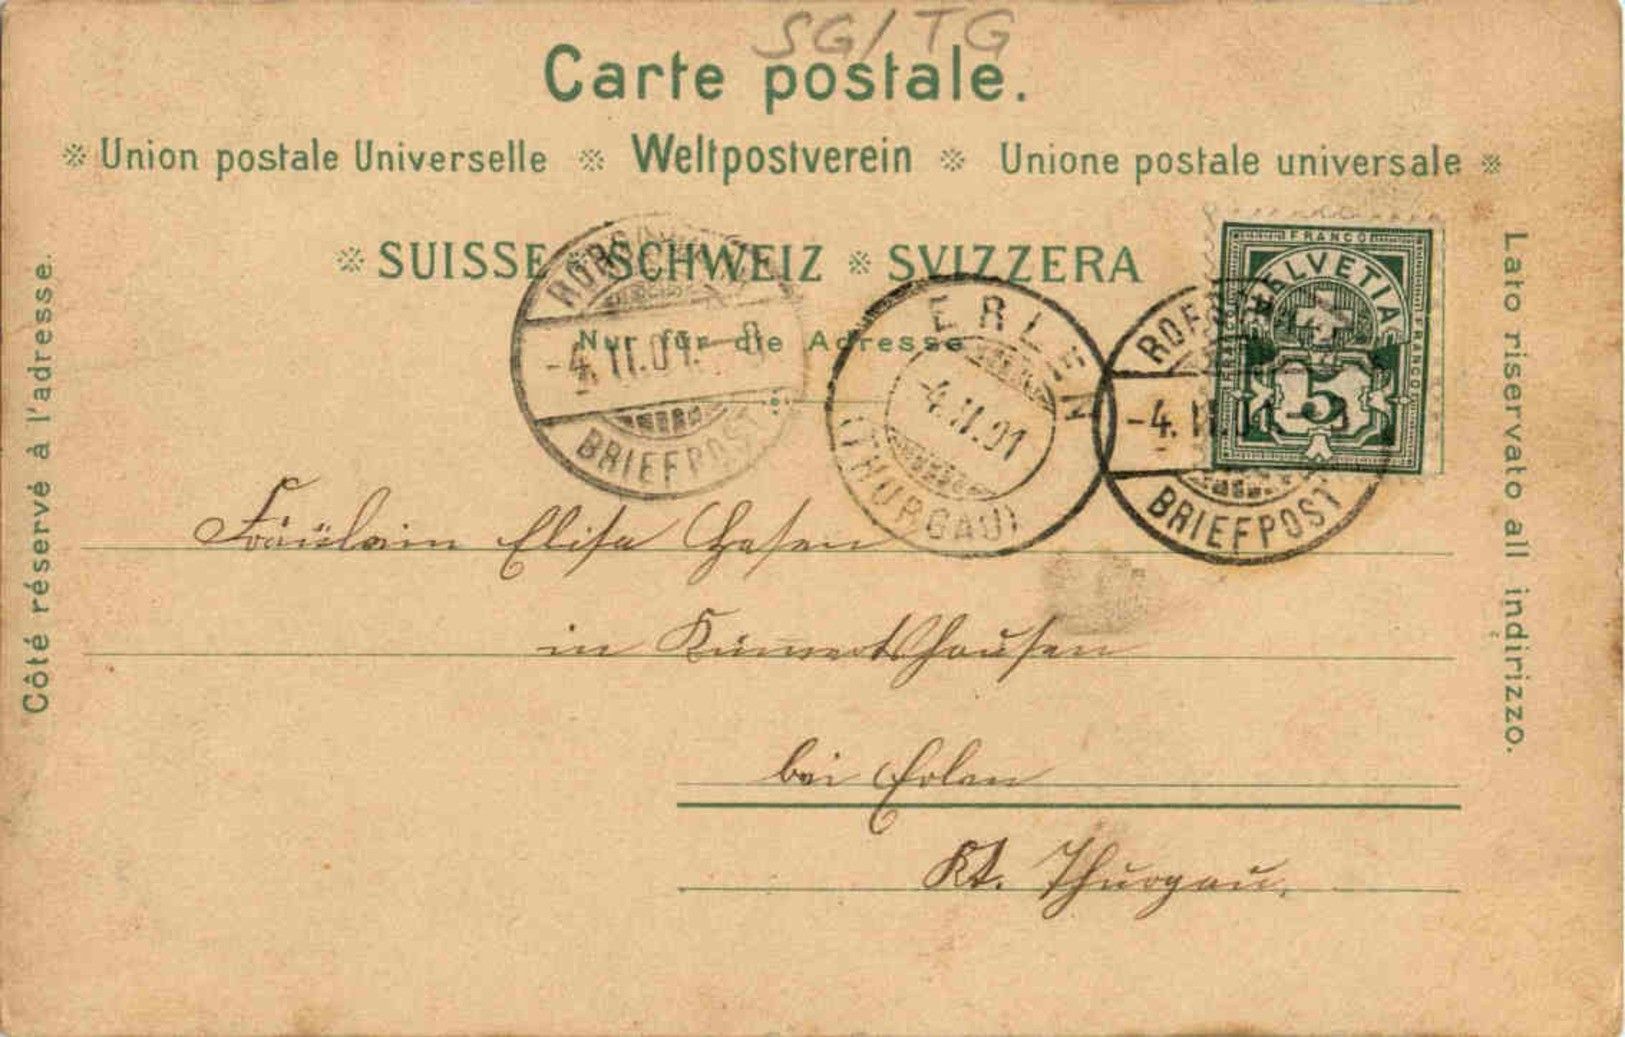 SG/TG
Carte postale.
Union postale Universelle Weltpostverein Unione postale universale
SUISSE SCHWEIZ SVIZZERA
Nur für die Adresse
Côté réservé à l'adresse.
Lato riservato all indirizzo.
FRANCO
HELVETIA
FRANCO
FRANCO
5
-4. II. 01.
BRIEFPOST
ERLEN
-4. II. 01
(THURGAU)
-4. II. 01
BRIEFPOST
Fräulein Elisa
in Kümmertshausen
bei Erlen
Kt. Thurgau.